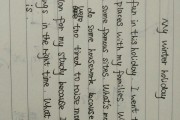 My winter holiday
fun in this holiday. I went t
places with my families. W
some famous sites. What's m
do some housework because
too tired to raise mon
ion for my study because I
ngs in the right time. What
is